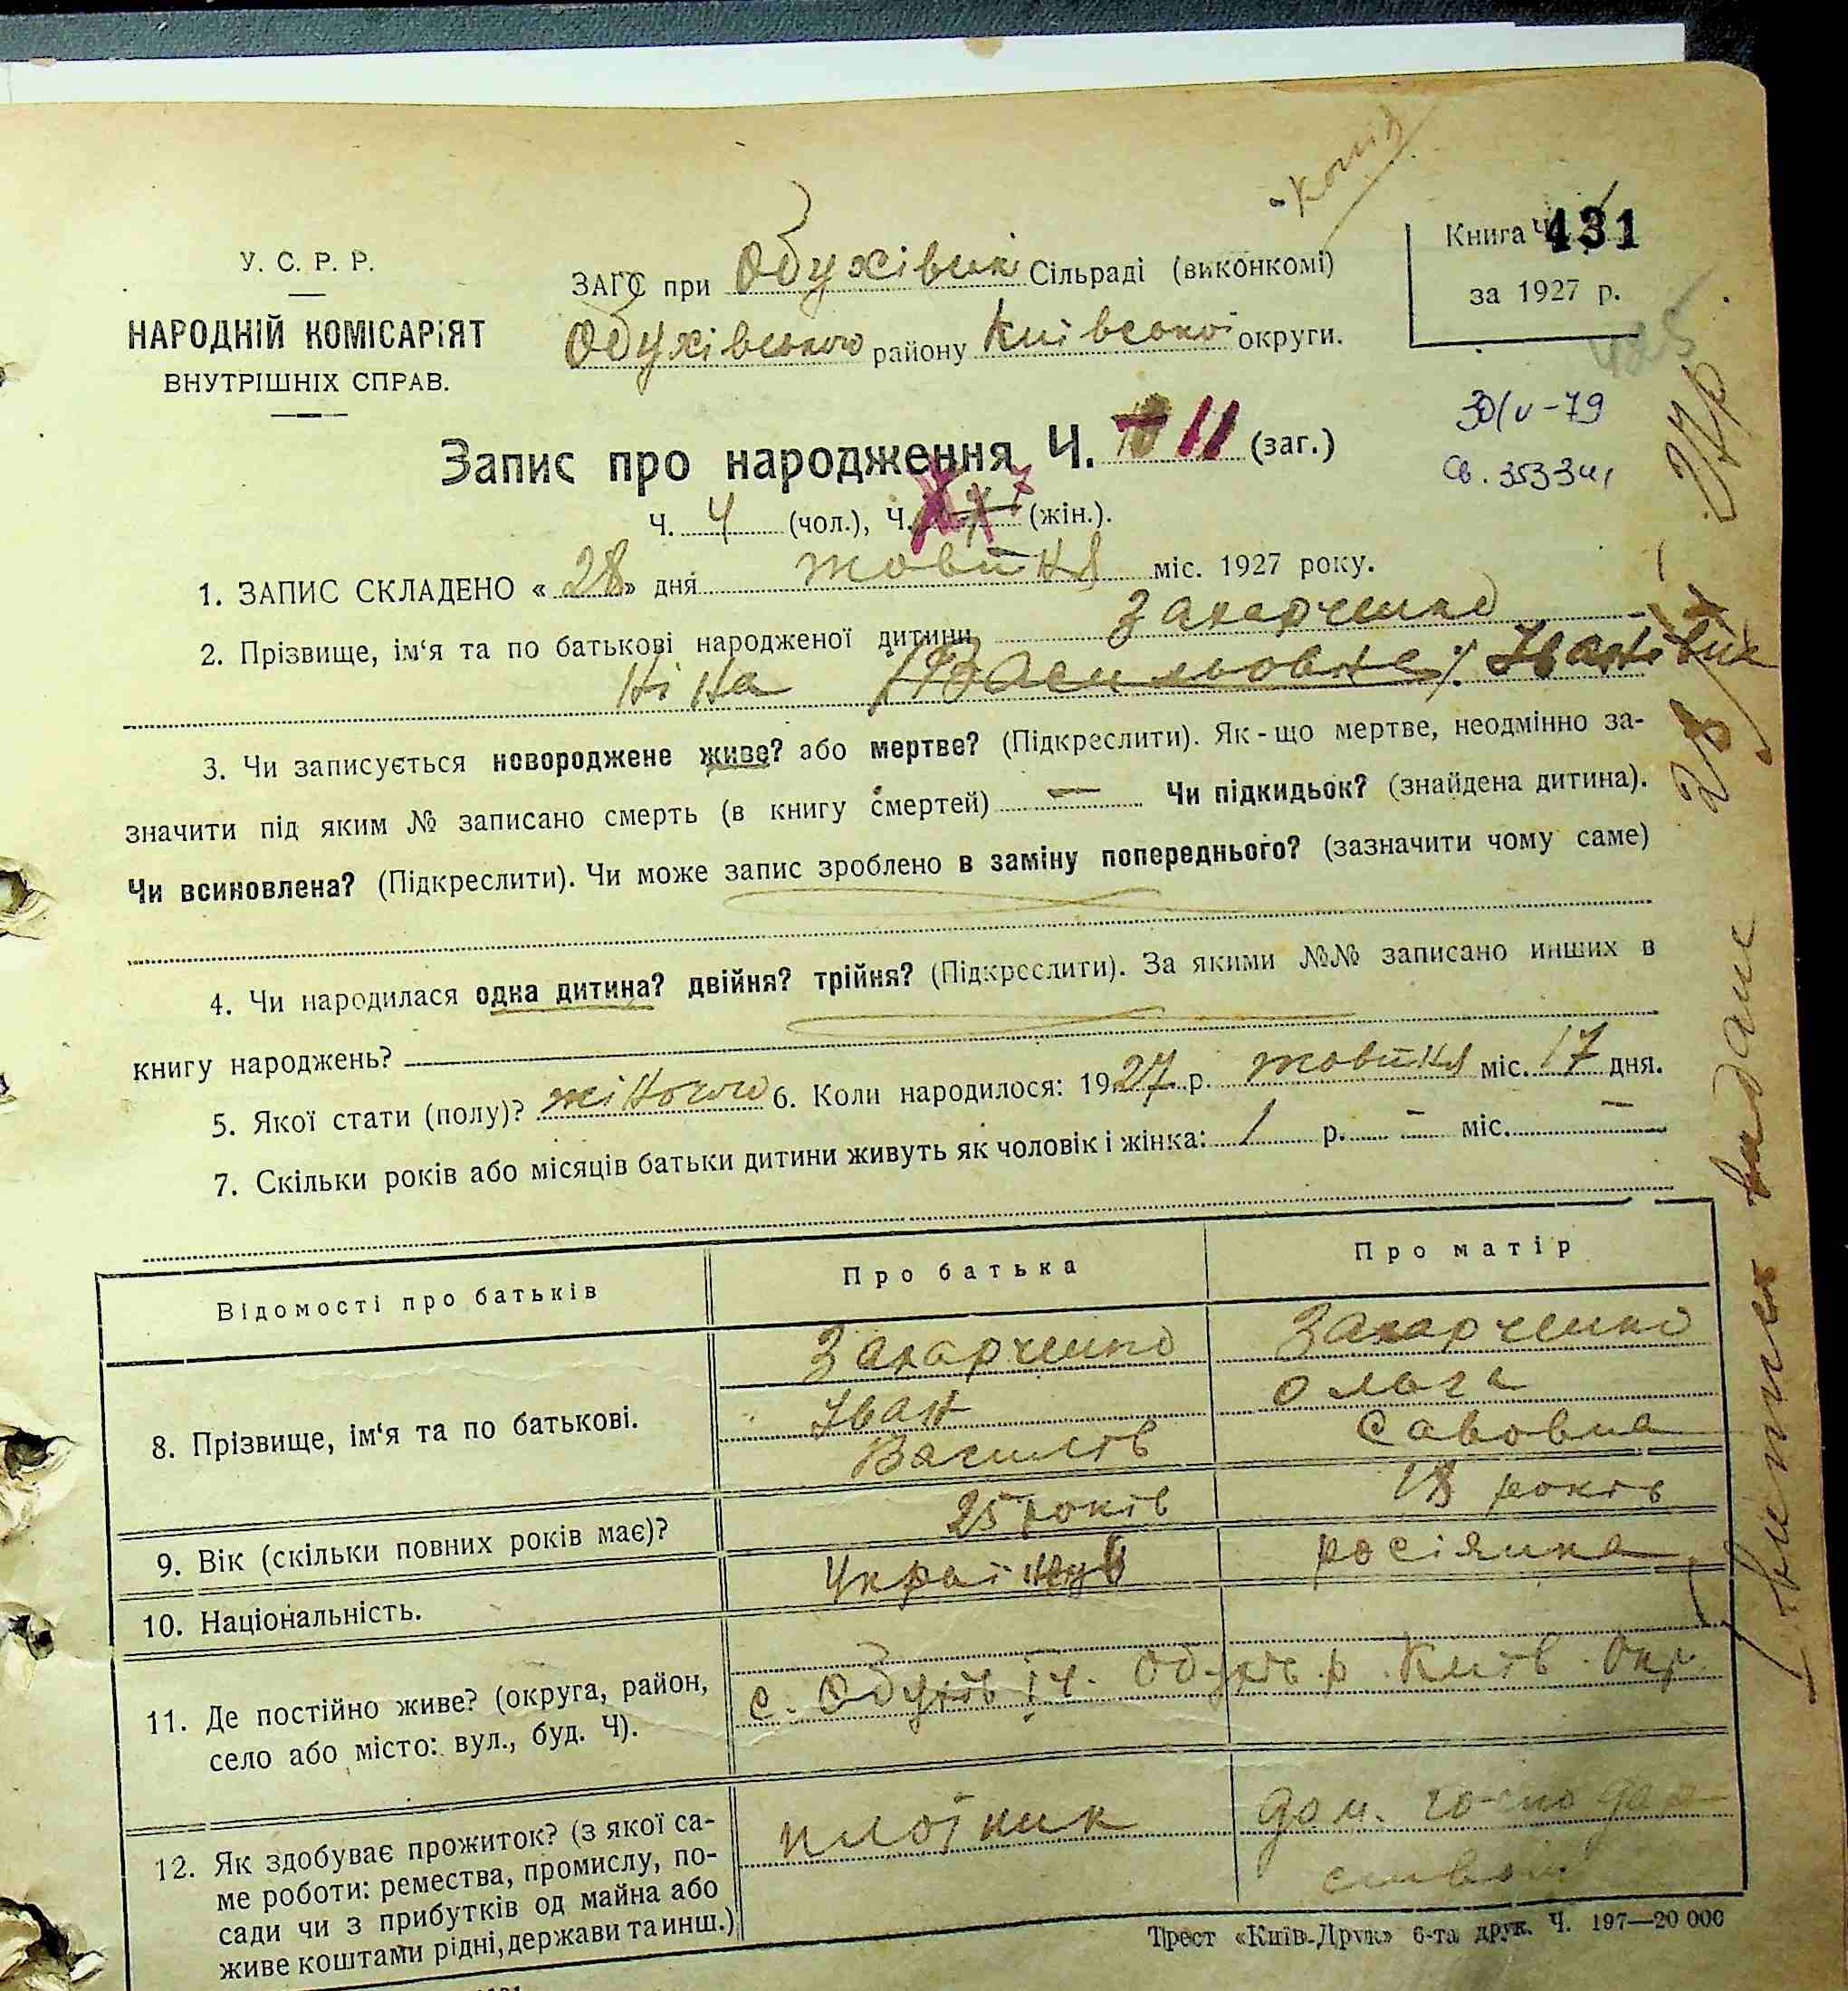 копія
У. С. Р. Р.
НАРОДНІЙ КОМІСАРІЯТ
ВНУТРІШНІХ СПРАВ.
ЗАГС при Обухівські Сільраді (виконкомі)
Обухівського району Київської округи.
Книга Ч. 431
за 1927 р.
30/V-79
Св. 353341
Запис про народження Ч. 11 (заг.)
Ч. 4 (чол.), Ч. 7 (жін.).
1. ЗАПИС СКЛАДЕНО « 28 » дня жовтня міс. 1927 року.
2. Прізвище, ім‘я та по батькові народженої дитини Захарченко
Ніна (Васильовна) Іванівна
3. Чи записується новороджене живе? або мертве? (Підкреслити). Як-що мертве, неодмінно за-
значити під яким № записано смерть (в книгу смертей) — Чи підкидьок? (знайдена дитина).
Чи всиновлена? (Підкреслити). Чи може запис зроблено в заміну попереднього? (зазначити чому саме)
4. Чи народилася одна дитина? двійня? трійня? (Підкреслити). За якими №№ записано инших в
книгу народжень?
5. Якої стати (полу)? жіночого 6. Коли народилося: 1927 р. жовтня міс. 17 дня.
7. Скільки років або місяців батьки дитини живуть як чоловік і жінка: 1 р. — міс. —
Відомості про батьків Про батька Про матір
8. Прізвище, ім‘я та по батькові.
Захарченко Захарченко
Іван Ольга
Василів Савовна
9. Вік (скільки повних років має)? 25 років 18 років
10. Національність. Українець росіянка
11. Де постійно живе? (округа, район,
село або місто: вул., буд. Ч).
с. Обухів І ч. Обухів. р. Київ. Окр.
12. Як здобуває прожиток? (з якої са-
ме роботи: ремества, промислу, по-
сади чи з прибутків од майна або
живе коштами рідні, держави та инш.)
плотник дом. господар
ством
Трест «Київ-Друк» 6-та друк. Ч. 197—20 000
витяг видане
28/X 27р.